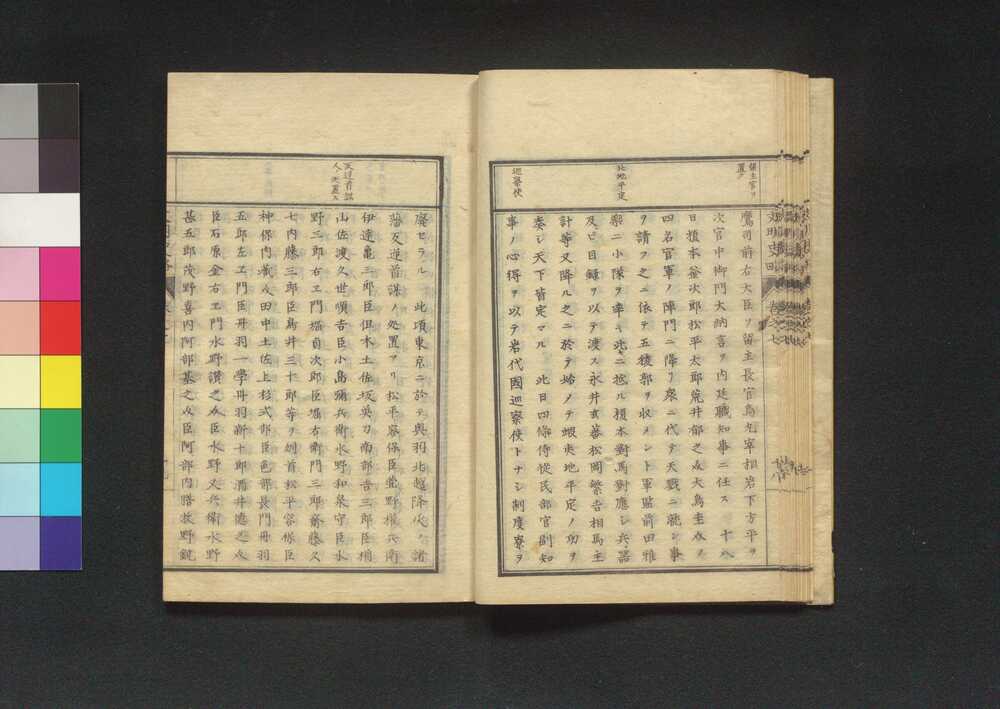 留主官ヲ置ク
鷹司前右大臣ヲ留主長官烏丸宰相岩下方平ヲ
次官中御門大納言ヲ内廷職知事ニ任ス 十八
日榎本釜次郎松平太郎荒井郁之丞大鳥圭介
四名官軍ノ陣門ニ降リ衆ニ代テ天戮ニ就ン事
ヲ請フ之ニ依テ五稜郭ヲ收メント軍監前田雅
樂二小隊ヲ率キ此ニ抵ル榎本對馬對應シ兵器
及ヒ目録ヲ以テ渡ス永井玄蕃松岡繁吉相馬主
北地平定
計等又降ル之ニ於テ始メテ蝦夷地平定ノ功ヲ
奏シ天下皆定マル 此日四條侍從民部官副知
巡察使
事ノ心得ヲ以テ岩代國巡察使トナシ制度寮ヲ
廢セラル 此頃東京ニ於テ奥羽北越降伏ノ諸
反逆首謀人ノ處置
藩反逆首謀ノ處置アリ松平容保臣萱野權兵衛
伊達龜三郎臣但木土佐坂英力南部吉三郎臣楢
山佐渡久世順吉臣小島彌兵衛水野和泉守臣水
野三郎右エ門堀貞次郎臣堀右衛門三郎齋藤久
七内藤三郎臣鳥井三十郎等ヲ刎首松平容保臣
神保内藏丞田中土佐上杉式部臣色部長門丹羽
五郎左エ門臣丹羽一學丹羽新十郎酒井徳之丞
臣石原金右エ門水野讃之丞臣水野又兵衛水野
甚五郎茂野喜内阿部基之丞臣阿部内膳牧野鋭